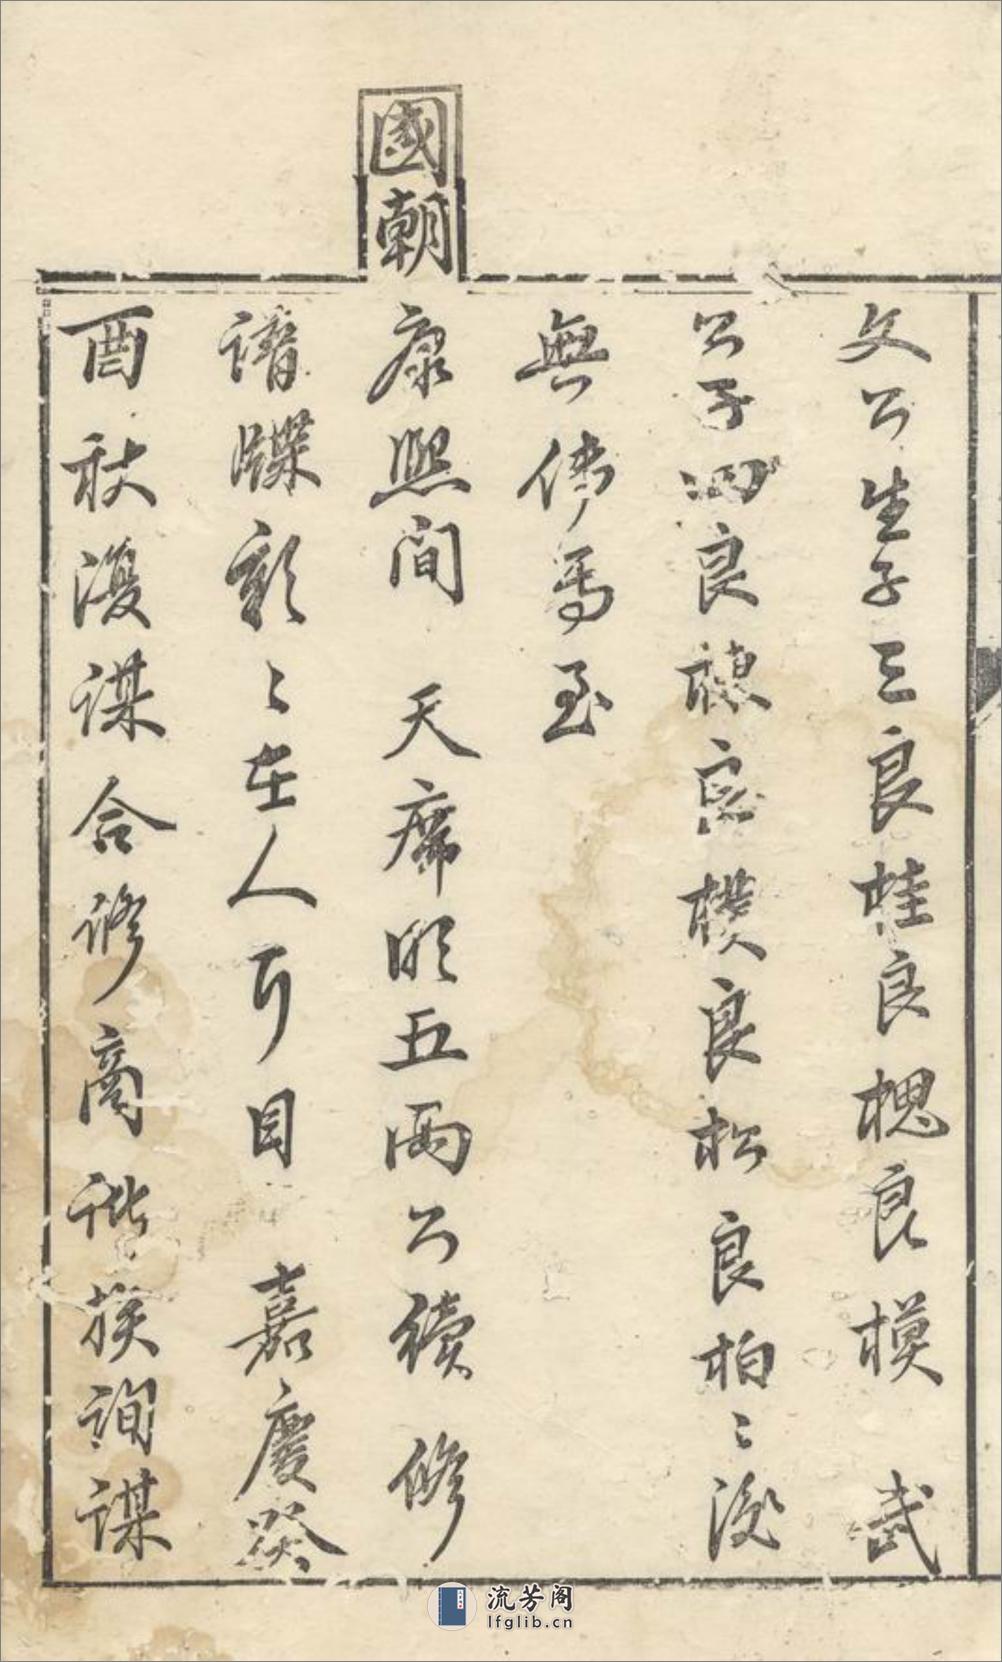 文公生子三良桂良槐良模　武
公子四良穗良樸良松良柏〻後
無傳焉至
國朝康熙間　天席明五兩公續修
譜牒彰〻在人耳目　嘉慶癸
酉秋復謀合修商諧族詢謀
流芳阁
lfglib.cn